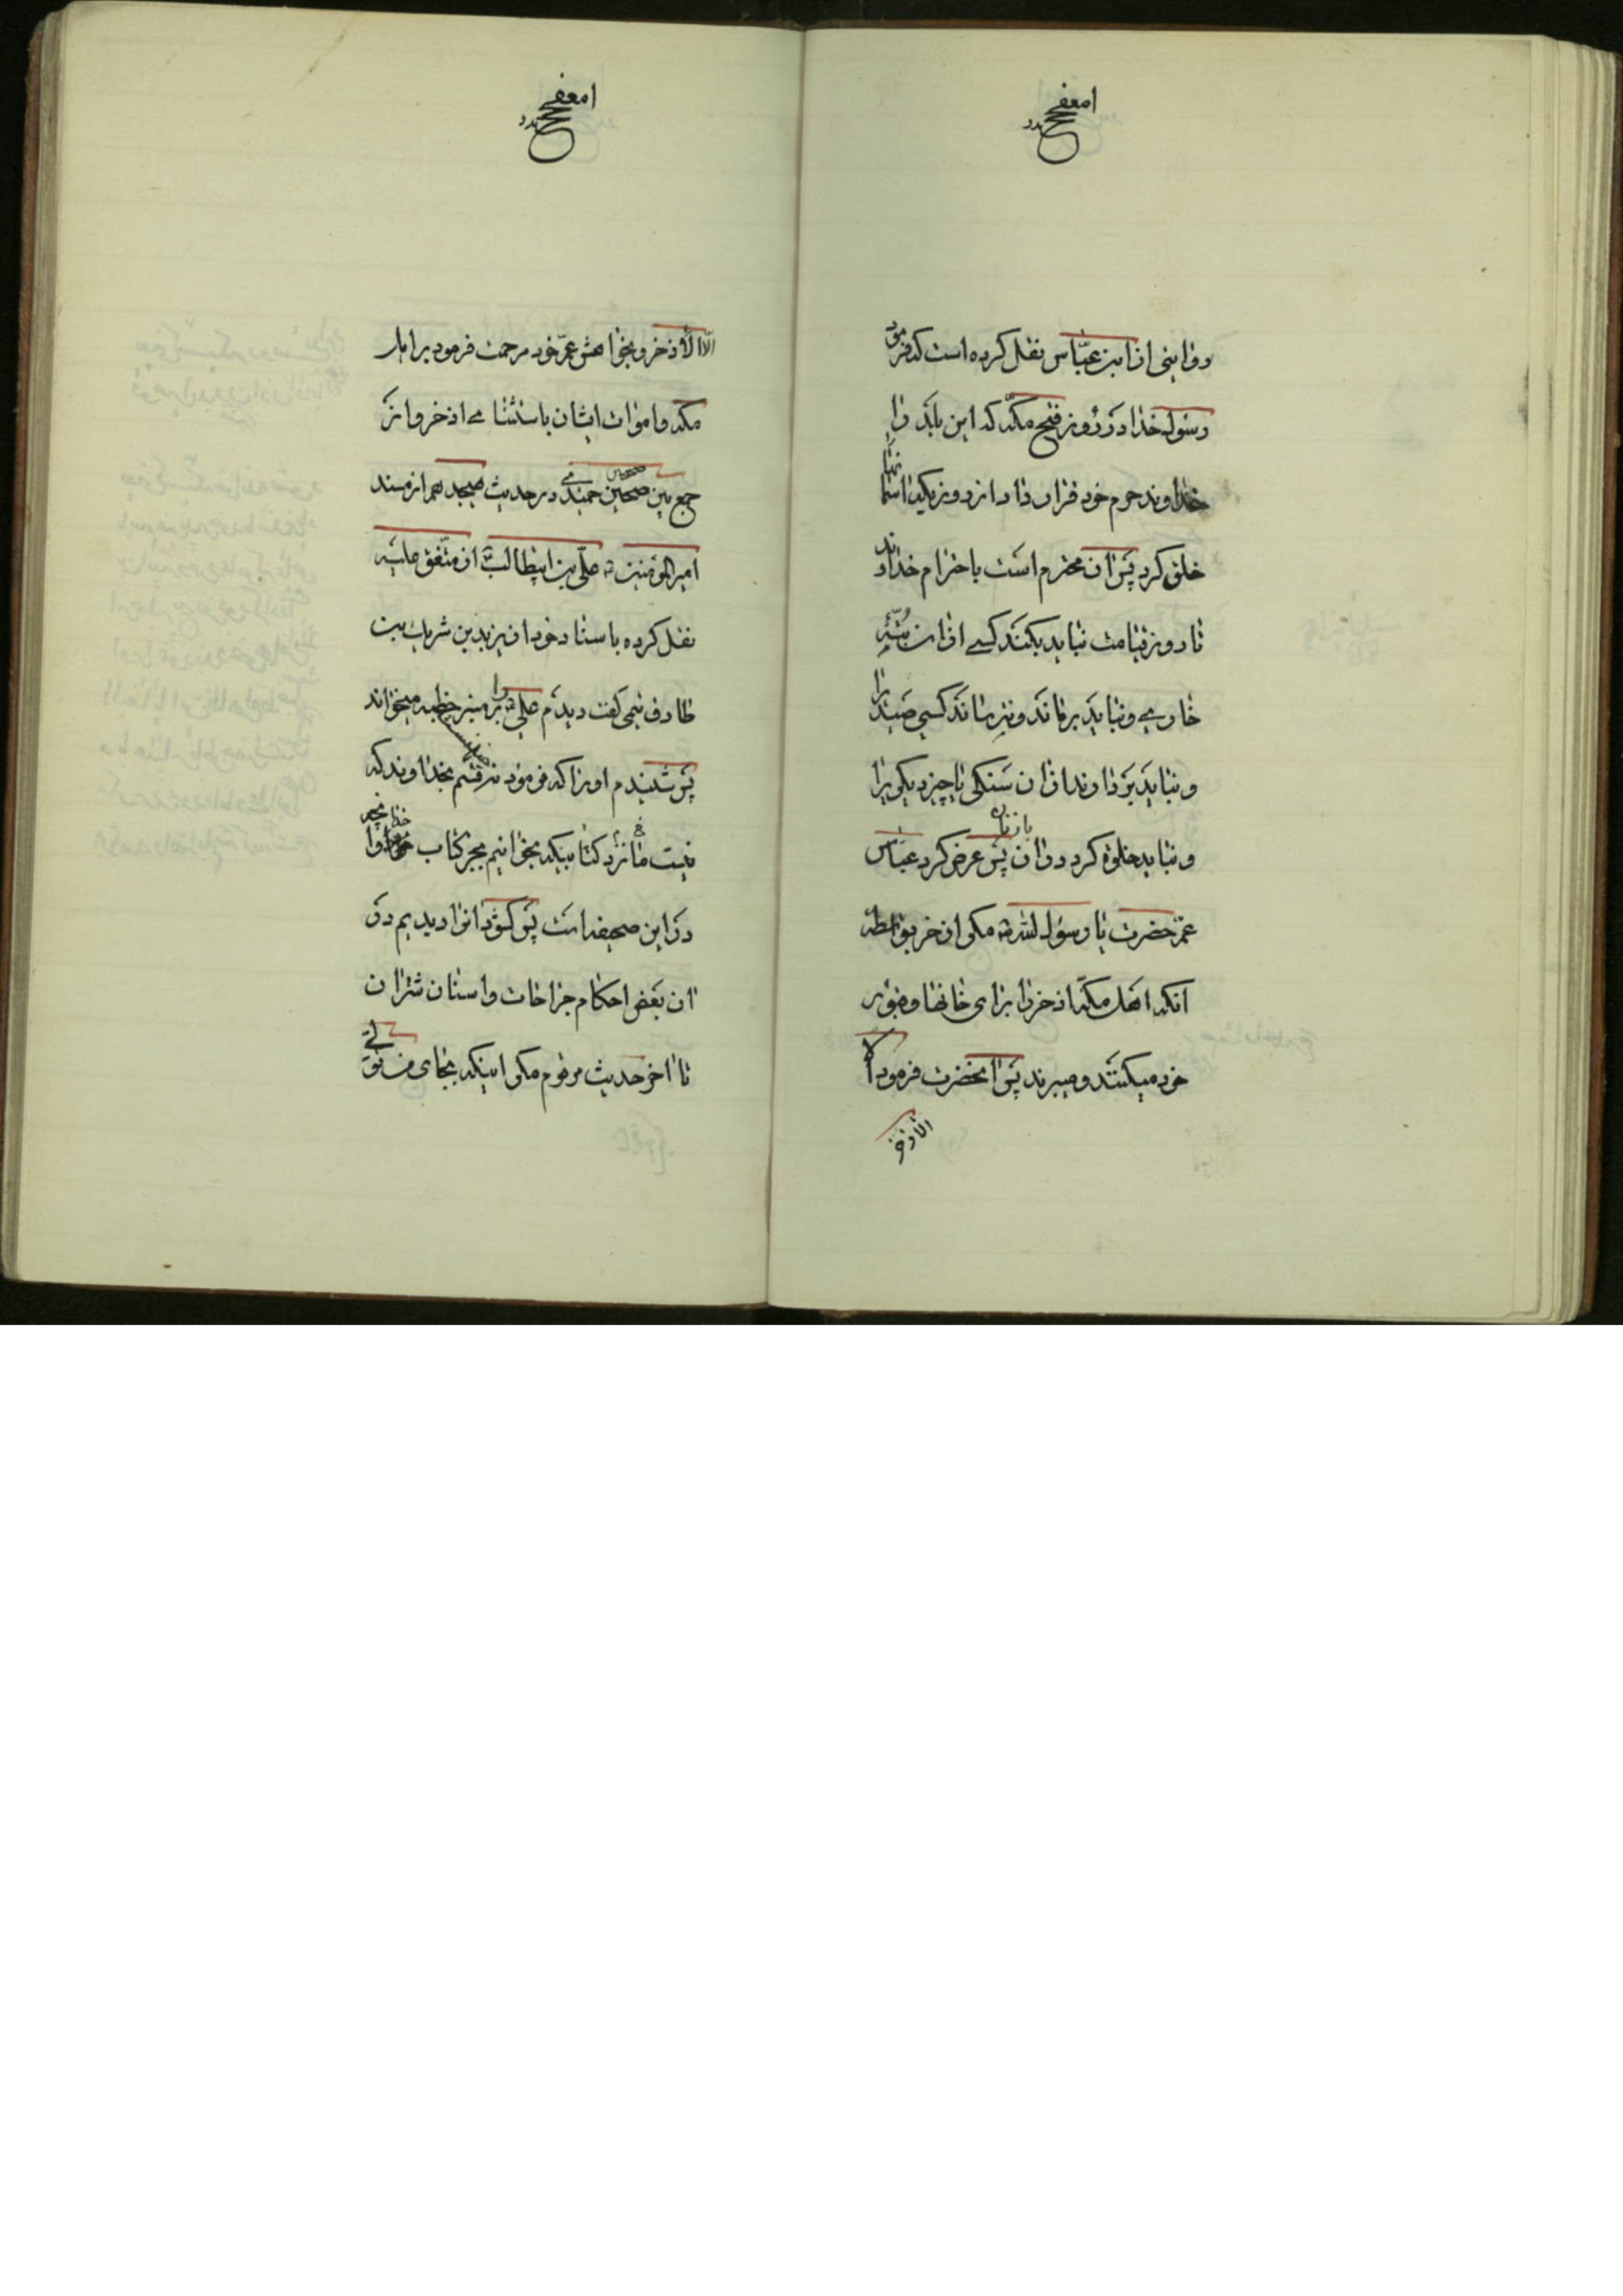 روایتی از ابن عبّاس نقل کرده است که فرمود
رسول خدا در روز فتح مکّه که این بلد را
خداوند حرم خود قرار داد از روزیکه آسمانها
خلق کرد پس آن محترم است باحترام خداوند
تا روز قیامت نباید بکند کسی از آن بتّهٔ
خاری و نباید برماند و بترساند کسی صیدیرا
و نباید بردارند از آن سنگی یا چیز دیگیرا
و نباید خلوة کرد در آن پس عرض کرد عبّاس
عمّ حضرت یا رسول الله مگر اذخر بواسطه
آنکه اهل مکّه اذخر را برای خانها و قبور
خود میکنند و میبرند پس آنحضرت فرمود الا
الاذخر
الّا الاذخر و بخواهش عمّ خود مرحمت فرمود بر اهل
مکه و اموات ایشان باستثنای اذخر و از
جمع بین صحیحین حمیدی در حدیث هیجدهم از مسند
امیر المؤمنین علّی بن ابیطالب از متّفق علیه
نقل کرده باسناد خود از یزید بن شریک بن
طارف تیمی گفت دیدم علی را بر منبر خطبه میخواند
پس شنیدم او را که فرمود نه قسم بخداوند که
نیست ما نزد کتابیکه بخوانیم بجز کتاب خدا
در این صحیفه است پس گشود آنرا دیدیم در
آن بعض احکام جراحات و اسنان شتران
تا آخر حدیث مرقوم مگر اینکه بجای